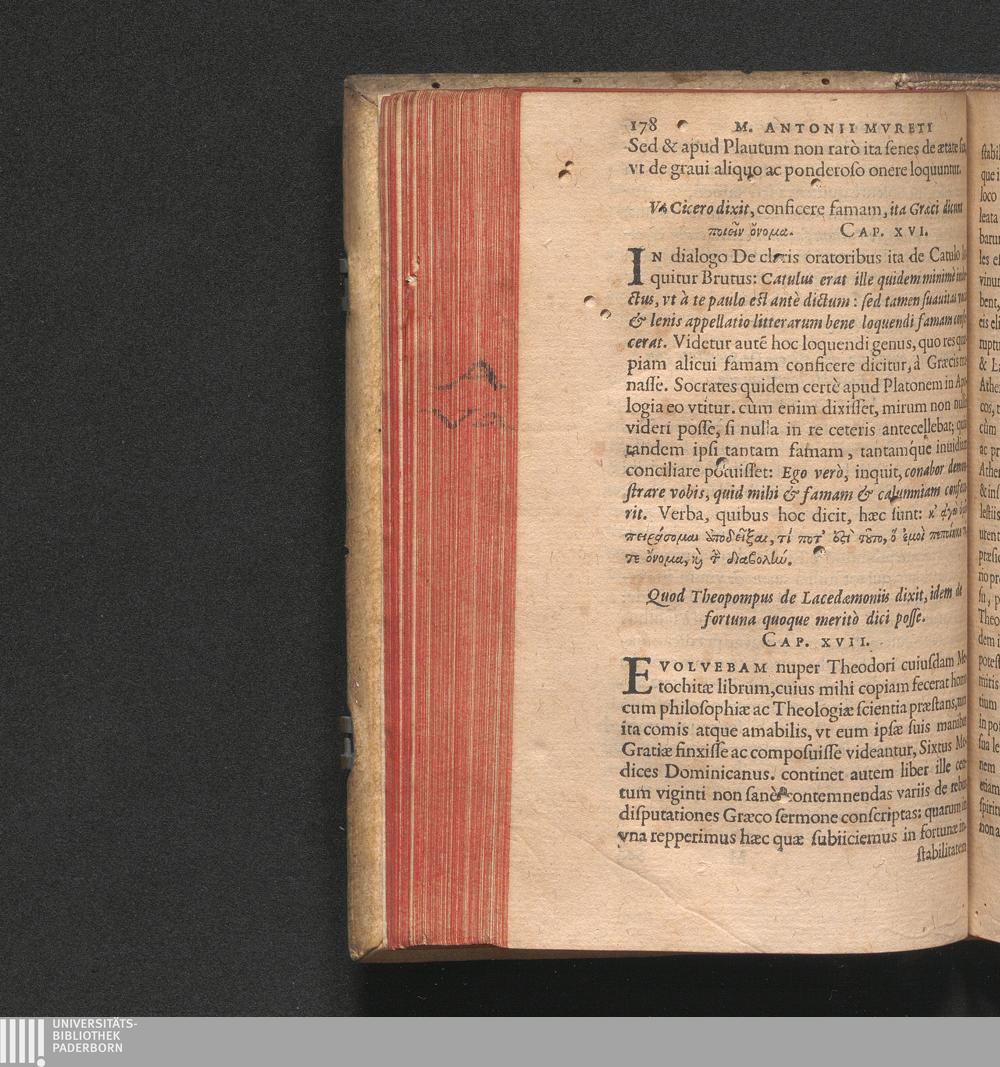 178 M. ANTONII MVRETI
Sed & apud Plautum non rarò ita senes de ætate
vt de graui aliquo ac ponderoso onere loquuntur.
Vt Cicero dixit, conficere famam, ita Græci dicunt
ποιεῖν ὄνομα. CAP. XVI.
IN dialogo De claris oratoribus ita de Catulo
quitur Brutus: Catulus erat ille quidem minimè
ctus, vt à te paulo est antè dictum: sed tamen suauitas
& lenis appellatio litterarum bene loquendi famam
cerat. Videtur autẽ hoc loquendi genus, quo res
piam alicui famam conficere dicitur, à Græcis
nasse. Socrates quidem certè apud Platonem in
logia eo vtitur. cùm enim dixisset, mirum non
videri posse, si nulla in re ceteris antecellebat;
tandem ipsi tantam famam, tantamque inuidiam
conciliare potuisset: Ego verò, inquit, conabor
strare vobis, quid mihi & famam & calumniam
rit. Verba, quibus hoc dicit, hæc sunt:
πειράσομαι ὑποδεῖξαι, τί ποτ' ὅστὶ τοῦτο, ὃ ἐμοὶ
τε ὄνομα, καὶ τὴν διαβολήν.
Quod Theopompus de Lacedæmoniis dixit, idem de
fortuna quoque meritò dici posse.
CAP. XVII.
EVOLVEBAM nuper Theodori cuiusdam
tochitæ librum, cuius mihi copiam fecerat
cum philosophiæ ac Theologiæ scientia præstans,
ita comis atque amabilis, vt eum ipsæ suis manibus
Gratiæ finxisse ac composuisse videantur, Sixtus
dices Dominicanus. continet autem liber ille
tum viginti non sanè contemnendas variis de
disputationes Græco sermone conscriptas: quarum
vna repperimus hæc quæ subiiciemus in fortunæ
stabilitatem
UNIVERSITÄTS-
BIBLIOTHEK
PADERBORN